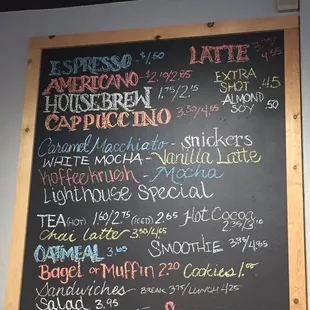 ESPRESSO - $1.50
LATTE
AMERICANO - 2.10/2.65
EXTRA SHOT .45
HOUSEBREW 1.75/2.15
ALMOND SOY .50
CAPPUCCINO 3.30/4.55
Caramel Macchiato - Snickers
WHITE MOCHA - Vanilla Latte
Koffee Krush - Mocha
Lighthouse Special
TEA (HOT) 1.60/2.75 (ICED) 2.65 Hot Cocoa
Chai latte 3.50/4.65
OATMEAL 3.65 SMOOTHIE 3.95/4.85
Bagel or Muffin 2.20 Cookies 1.00
Sandwiches - BREAK 3.75/LUNCH 4.25
Salad 3.95